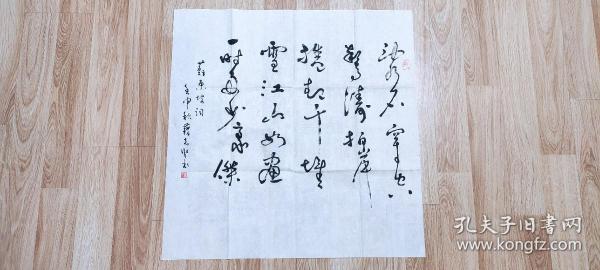 乱石穿空
惊涛拍岸
捲起千堆
雪江山如画
一时多少豪傑
苏东坡词
壬申秋
孔夫子旧书网
www.kongfz.com